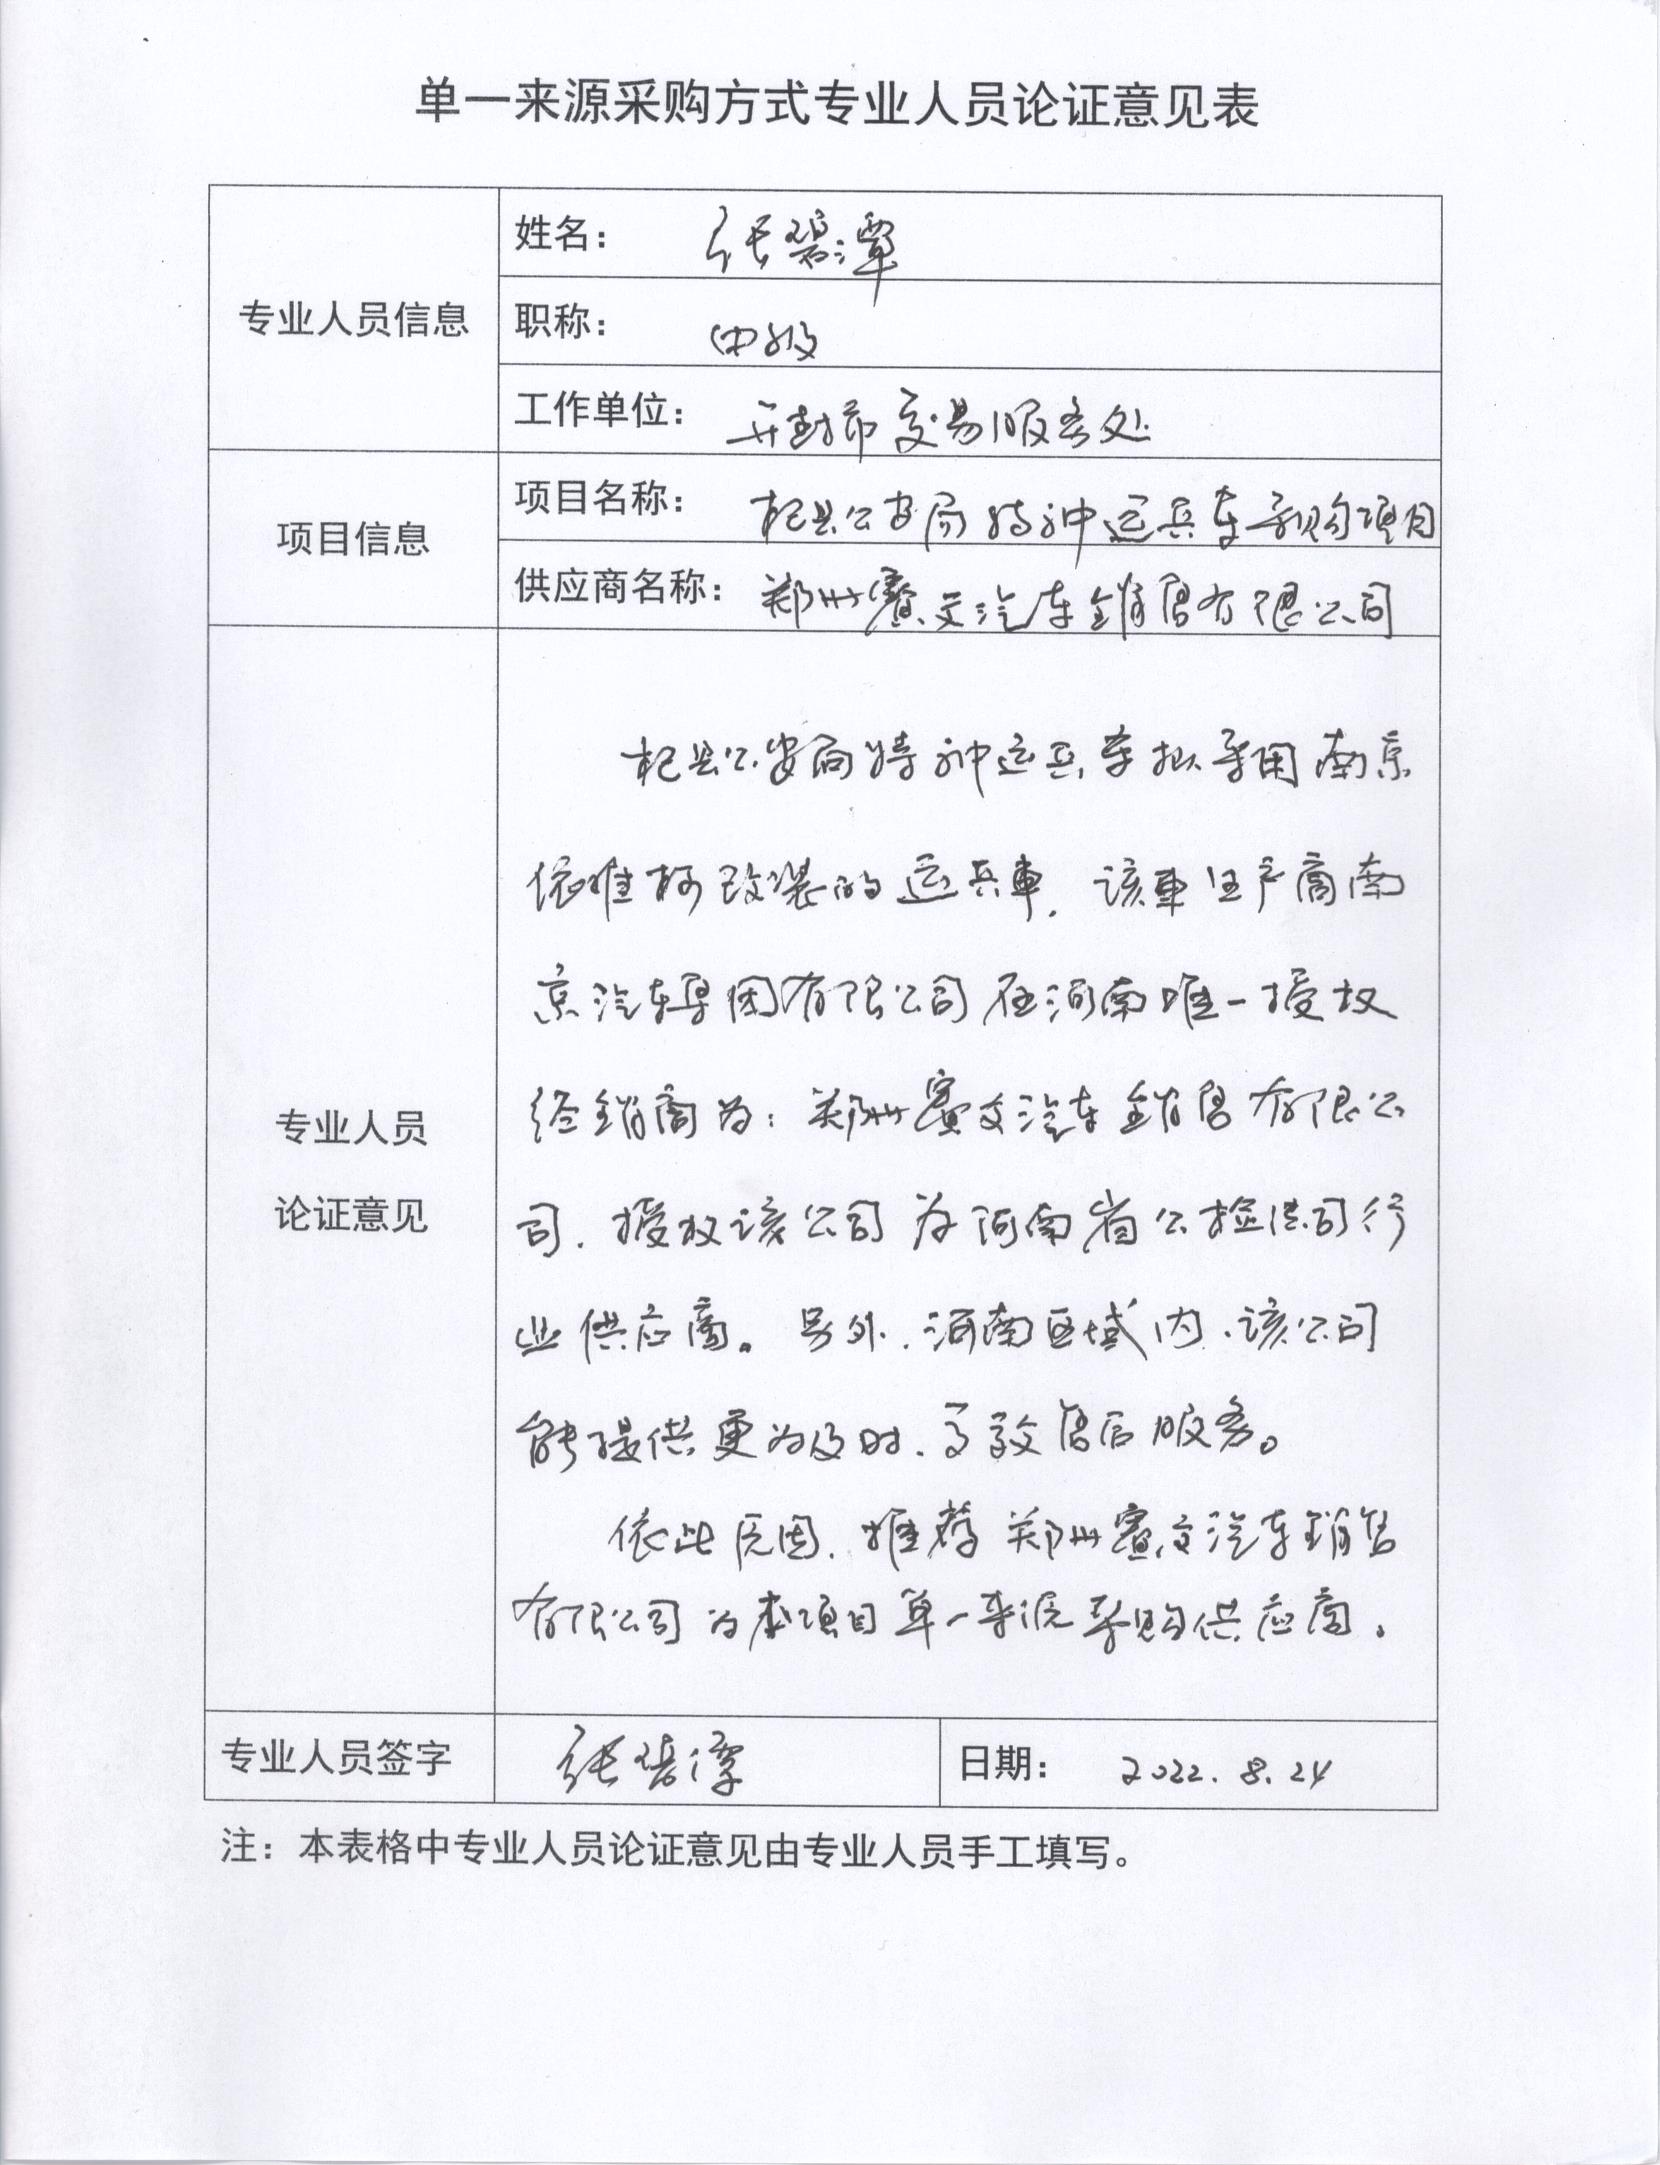 单一来源采购方式专业人员论证意见表
专业人员信息
姓名： 张碧潭
职称： 中级
工作单位： 开封市交易服务处
项目信息
项目名称： 杞县公安局特种运兵车采购项目
供应商名称： 郑州赛文汽车销售有限公司
专业人员
论证意见
杞县公安局特种运兵车拟采用南京
依维柯改装的运兵車，该車生产商南
京汽车集团有限公司在河南唯一授权
经销商为：郑州赛文汽车销售有限公
司，授权该公司为河南省公检法司行
业供应商。另外，河南区域内，该公司
能提供更为及时、高效售后服务。
依此原因，推荐郑州赛文汽车销售
有限公司为本项目单一来源采购供应商。
专业人员签字 张碧潭 日期： 2022.8.24
注：本表格中专业人员论证意见由专业人员手工填写。